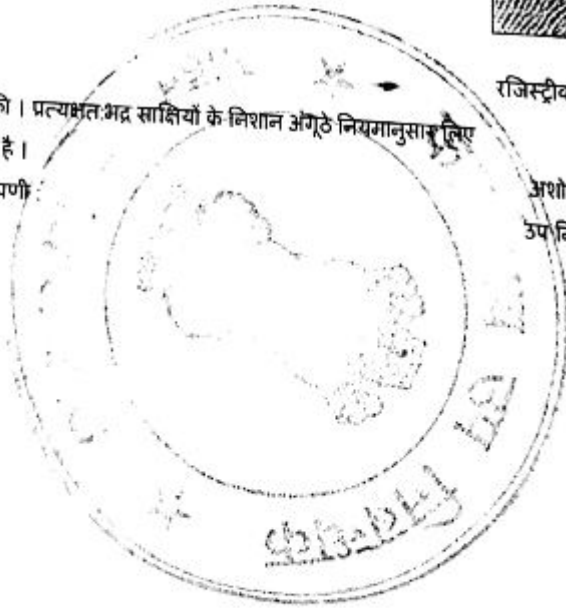 रजिस्ट्रीक
की । प्रत्यक्षत:भद्र साक्षियों के निशान अंगूठे नियमानुसार लिए
है ।
पणी :
अशो
उप नि